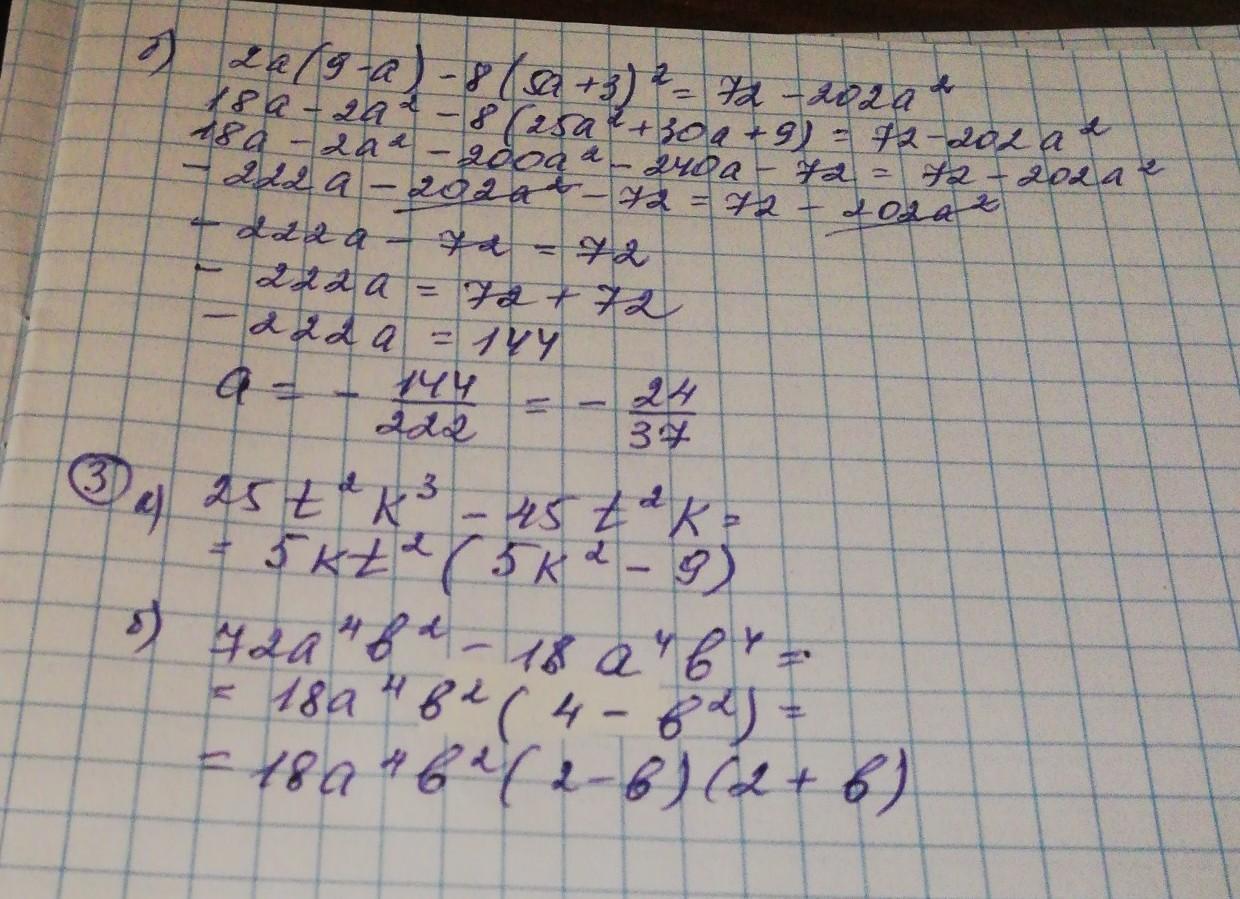 б) 2a(9-a) - 8(5a+3)² = 72 - 202a²
18a - 2a² - 8(25a² + 30a + 9) = 72 - 202a²
18a - 2a² - 200a² - 240a - 72 = 72 - 202a²
- 222a - 202a² - 72 = 72 - 202a²
- 222a - 72 = 72
- 222a = 72 + 72
- 222a = 144
a = - 144/222 = - 24/37
③ а) 25t²k³ - 45t²k =
= 5kt²(5k² - 9)
б) 72a⁴b² - 18a⁴b⁴ =
= 18a⁴b²(4 - b²) =
= 18a⁴b²(2 - b)(2 + b)